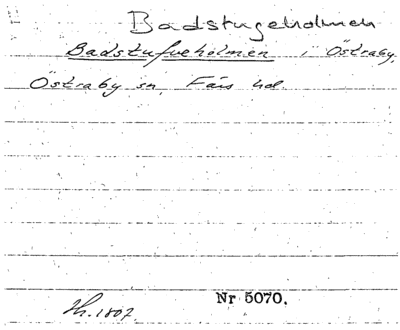 Badstugeholmen
Badstufveholmen i Östraby,
Östraby sn, Färs hd.
Nr 5070.
Th. 1807.